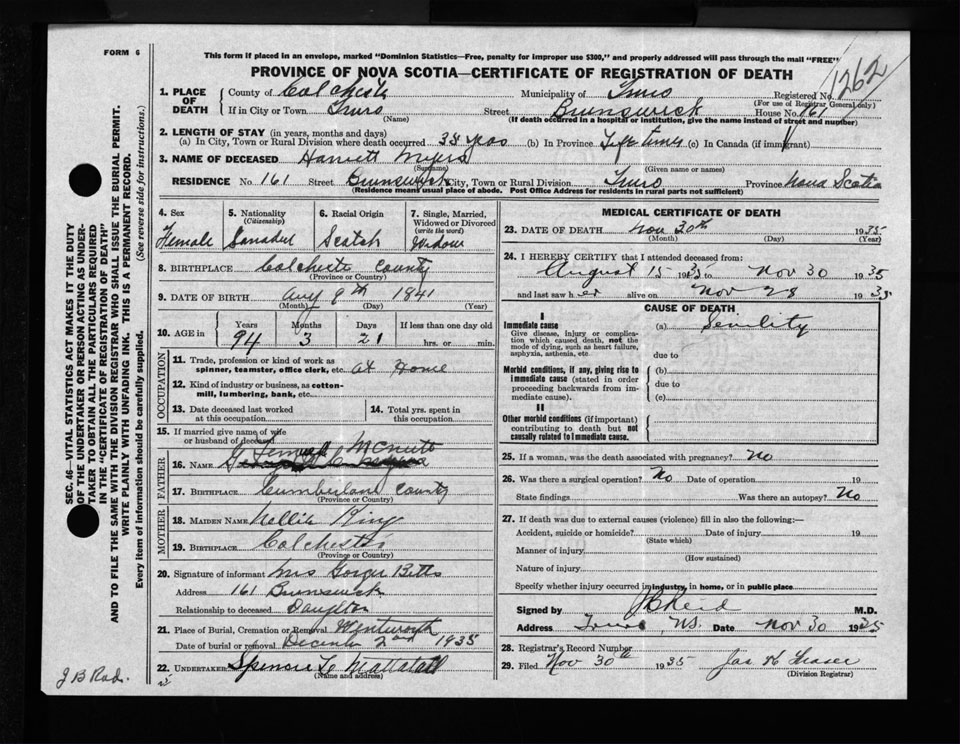 FORM 6
This form if placed in an envelope, marked "Dominion Statistics—Free, penalty for improper use $300," and properly addressed will pass through the mail "FREE"
PROVINCE OF NOVA SCOTIA—CERTIFICATE OF REGISTRATION OF DEATH
1262
1. PLACE OF DEATH
County of Colchester Municipality of Truro Registered No.
(For use of Registrar General only)
If in City or Town Truro Street Brunswick House No. 161
(Name) (If death occurred in a hospital or institution, give the name instead of street and number)
2. LENGTH OF STAY (in years, months and days)
(a) In City, Town or Rural Division where death occurred 35 years (b) In Province Life time (c) In Canada (if immigrant)
3. NAME OF DECEASED Harriett Myers
(Surname) (Given name or names)
RESIDENCE No. 161 Street Brunswick City, Town or Rural Division Truro Province Nova Scotia
(Residence means usual place of abode. Post Office Address for residents in rural parts not sufficient)
4. Sex
Female
5. Nationality
(Citizenship)
6. Racial Origin
Scotch
7. Single, Married, Widowed or Divorced
(write the word)
Widow
8. BIRTHPLACE Colchester County
(Province or Country)
9. DATE OF BIRTH Aug 9th 1841
(Month) (Day) (Year)
10. AGE in
Years Months Days If less than one day old
94 3 21 hrs. or min.
OCCUPATION
11. Trade, profession or kind of work as spinner, teamster, office clerk, etc. At Home
12. Kind of industry or business, as cotton-mill, lumbering, bank, etc.
13. Date deceased last worked at this occupation
14. Total yrs. spent in this occupation
15. If married give name of wife or husband of deceased
FATHER
16. NAME McNutt
17. BIRTHPLACE Cumberland County
(Province or Country)
MOTHER
18. MAIDEN NAME Nellie King
19. BIRTHPLACE Colchester
(Province or Country)
20. Signature of informant Mrs George Betts
Address 161 Brunswick
Relationship to deceased Daughter
21. Place of Burial, Cremation or Removal Wentworth
Date of burial or removal December 2nd 1935
22. UNDERTAKER
(Name and address)
MEDICAL CERTIFICATE OF DEATH
23. DATE OF DEATH Nov 30th 1935
(Month) (Day) (Year)
24. I HEREBY CERTIFY that I attended deceased from:
August 15 1935 to Nov 30 1935
and last saw her alive on Nov 28 1935
CAUSE OF DEATH
I
Immediate cause
Give disease, injury or complication which caused death, not the mode of dying, such as heart failure, asphyxia, asthenia, etc.
(a) Senility
due to
Morbid conditions, if any, giving rise to immediate cause (stated in order proceeding backwards from immediate cause).
(b)
due to
(c)
II
Other morbid conditions (if important) contributing to death but not causally related to immediate cause.
25. If a woman, was the death associated with pregnancy? No
26. Was there a surgical operation? No Date of operation 19
State findings Was there an autopsy? No
27. If death was due to external causes (violence) fill in also the following:—
Accident, suicide or homicide? Date of injury 19
(State which)
Manner of injury
(How sustained)
Nature of injury
Specify whether injury occurred in industry, in home, or in public place
Signed by J B Reid M.D.
Address Truro, NS. Date Nov 30 1935
28. Registrar's Record Number
29. Filed Nov 30th 1935 Jas H Fraser
(Division Registrar)
SEC. 46—VITAL STATISTICS ACT MAKES IT THE DUTY
OF THE UNDERTAKER OR PERSON ACTING AS UNDER-
TAKER TO OBTAIN ALL THE PARTICULARS REQUIRED
IN THE "CERTIFICATE OF REGISTRATION OF DEATH"
AND TO FILE THE SAME WITH THE DIVISION REGISTRAR WHO SHALL ISSUE THE BURIAL PERMIT.
WRITE PLAINLY WITH UNFADING INK. THIS IS A PERMANENT RECORD.
Every item of information should be carefully supplied. (See reverse side for instructions.)